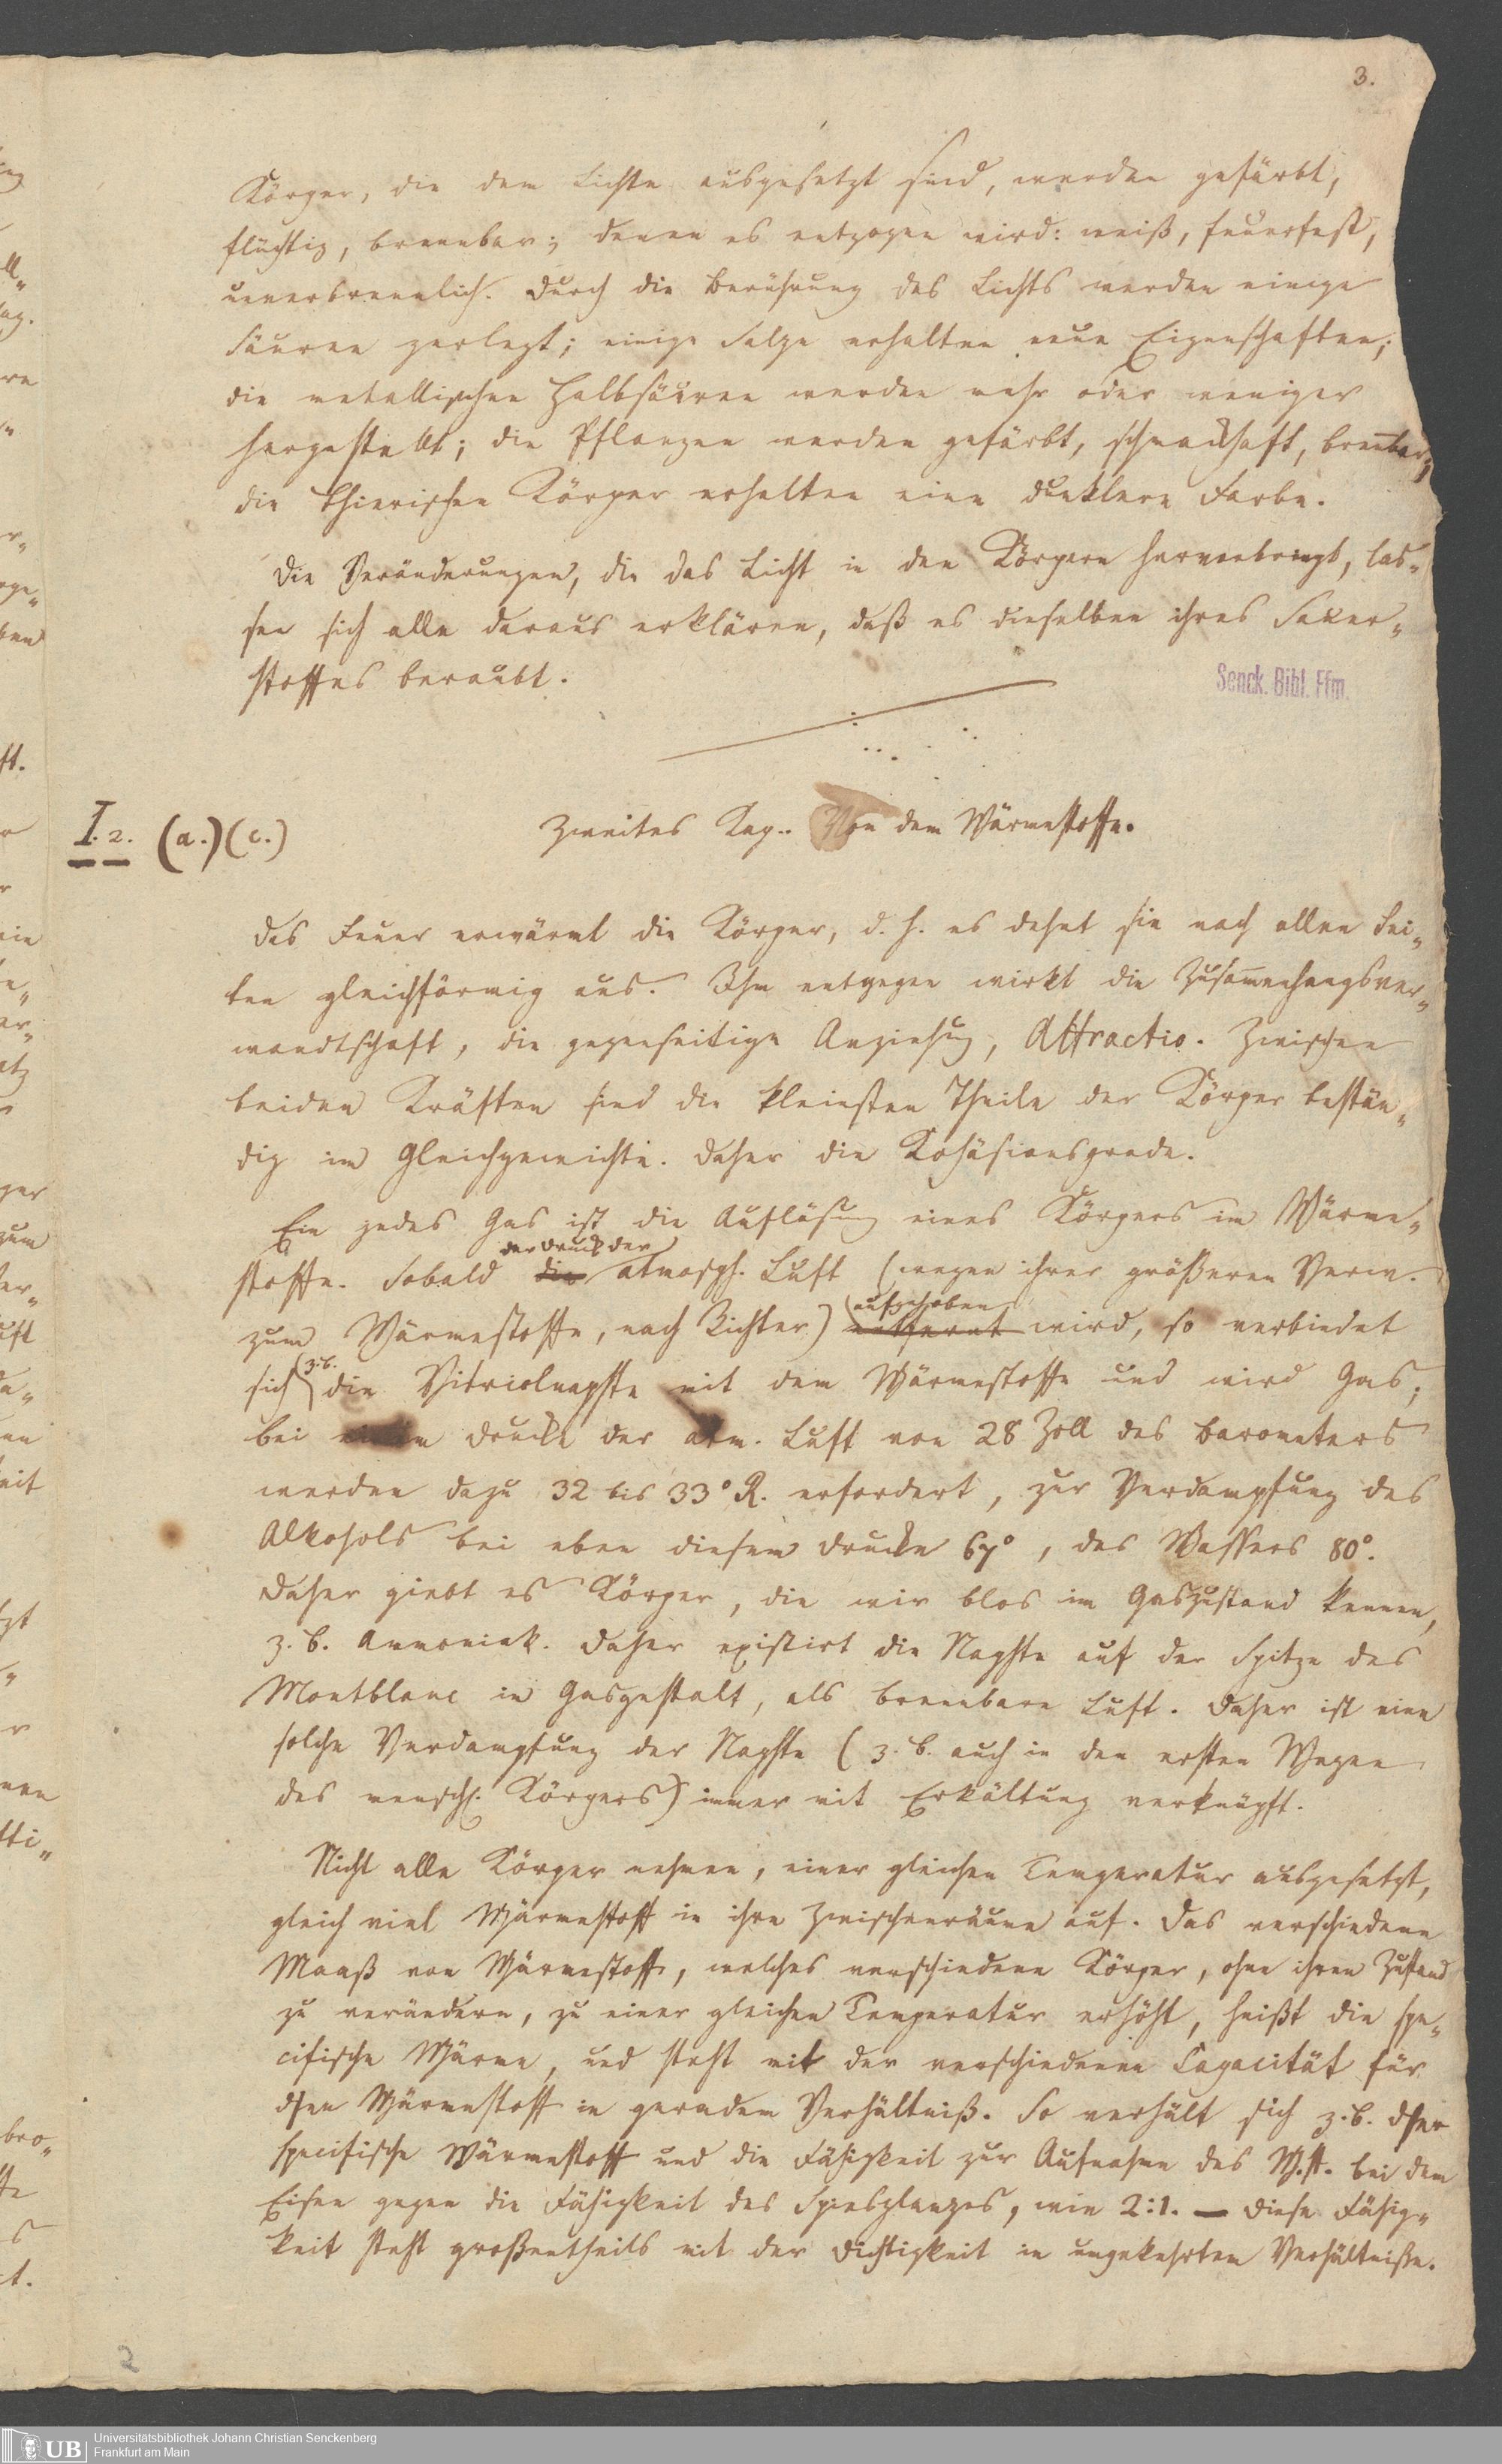 3.
Körper, die dem Lichte ausgesetzt sind, werden gefärbt,
flüchtig, brennbar; denen es entzogen wird: weiß, feuerfest,
unverbrennlich. Durch die Berührung des Lichts werden einige
Säuren zerlegt; einige Salze erhalten neue Eigenschaften;
die metallischen Halbsäuren werden mehr oder weniger
hergestellt; die Pflanzen werden gefärbt, schmackhaft, brenbar;
die thierischen Körper erhalten eine dunklere Farbe.
Die Veränderungen, die das Licht in den Körpern hervorbringt, las„
sen sich alle daraus erklären, daß es dieselben ihres Sauer„
stoffes beraubt.
Senck. Bibl. Ffm.
I. 2. (a.) (c.)
Zweites Kap.. Von dem Wärmestoffe.
Das Feuer erwärmt die Körper, d. h. es dehnt sie nach allen Sei„
ten gleichförmig aus. Ihm entgegen wirkt die Zusam̅enhangsver„
wandtschaft, die gegenseitige Anziehung, Attractio. Zwischen
beiden Kräften sind die kleinsten Theile der Körper bestän„
dig im Gleichgewichte. Daher die Kohäsionsgrade.
Ein jedes Gas ist die Auflösung eines Körpers im Wärme„
der Druck der
stoffe. Sobald die atmosph. Luft (wegen ihrer größeren Verw.
aufgehoben
zum Wärmestoffe, nach Richter) entfernt wird, so verbindet
z. b.
sich die Vitriolnaphte mit dem Wärmestoffe und wird Gas;
bei einem Drucke der atm. Luft von 28 Zoll des Barometers
werden dazu 32 bis 33° R. erfordert, zur Verdampfung des
Alkohols bei eben diesem Drucke 67°, des Wassers 80°.
Daher giebt es Körper, die wir blos im Gaszustand kennen,
z. B. Ammoniak. Daher existirt die Naphte auf der Spitze des
Montblanc in Gasgestalt, als brennbare Luft. Daher ist eine
solche Verdampfung der Naphte (z. B. auch in den ersten Wegen
des menschl. Körpers) immer mit Erkältung verknüpft.
Nicht alle Körper nehmen, einer gleichen Temperatur ausgesetzt,
gleich viel Wärmestoff in ihre Zwischenräume auf. Das verschiedene
Maaß von Wärmestoff, welches verschiedene Körper, ohne ihren Zustand
zu verändern, zu einer gleichen Temperatur erhöht, heißt die spe„
cifische Wärme, und steht mit der verschiedenen Capacität für
dsen Wärmestoff in geradem Verhältniß. So verhält sich z. B. dser
specifische Wärmestoff und die Fähigkeit zur Aufnahme des W.st. bei dem
Eisen gegen die Fähigkeit des Spiesglanzes, wie 2:1. — Diese Fähig„
keit steht großentheils mit der Dichtigkeit in umgekehrten Verhältniße.
2
UB
Universitätsbibliothek Johann Christian Senckenberg
Frankfurt am Main